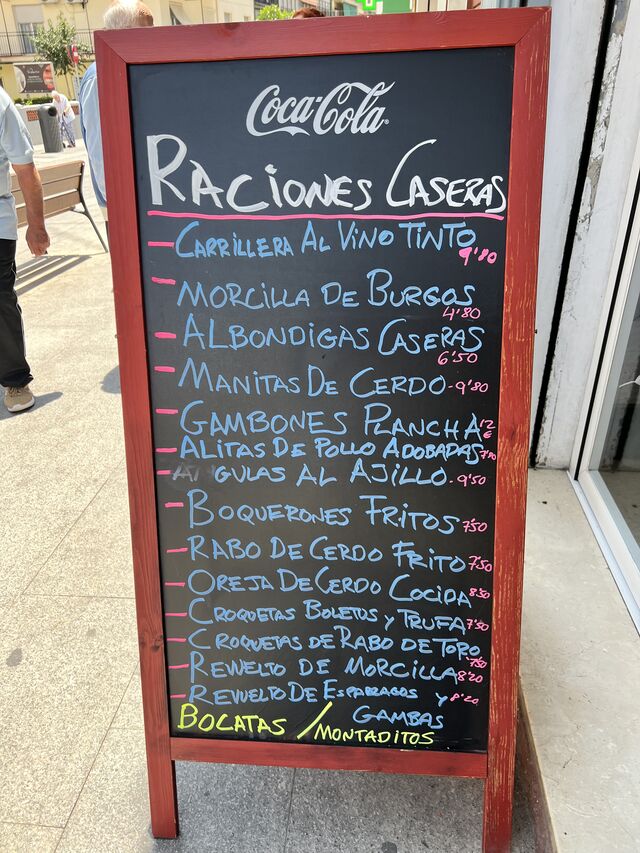 Coca-Cola
RACIONES CASERAS
- CARRILLERA AL VINO TINTO 9'80
- MORCILLA DE BURGOS 4'80
- ALBONDIGAS CASERAS 6'50
- MANITAS DE CERDO - 9'80
- GAMBONES PLANCHA 12 €
- ALITAS DE POLLO ADOBADAS
- GULAS AL AJILLO - 9'50
- BOQUERONES FRITOS 7'50
- RABO DE CERDO FRITO 7'50
- OREJA DE CERDO COCIDA 8'50
- CROQUETAS BOLETOS Y TRUFA 7'50
- CROQUETAS DE RABO DE TORO 7'50
- REVUELTO DE MORCILLA 8'20
- REVUELTO DE ESPARRAGOS Y 8'20
GAMBAS
BOCATAS / MONTADITOS